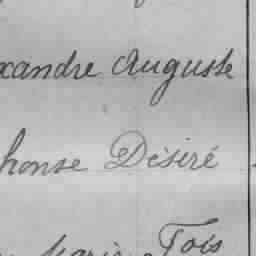 xandre Auguste
honse Désiré
Marie Fois